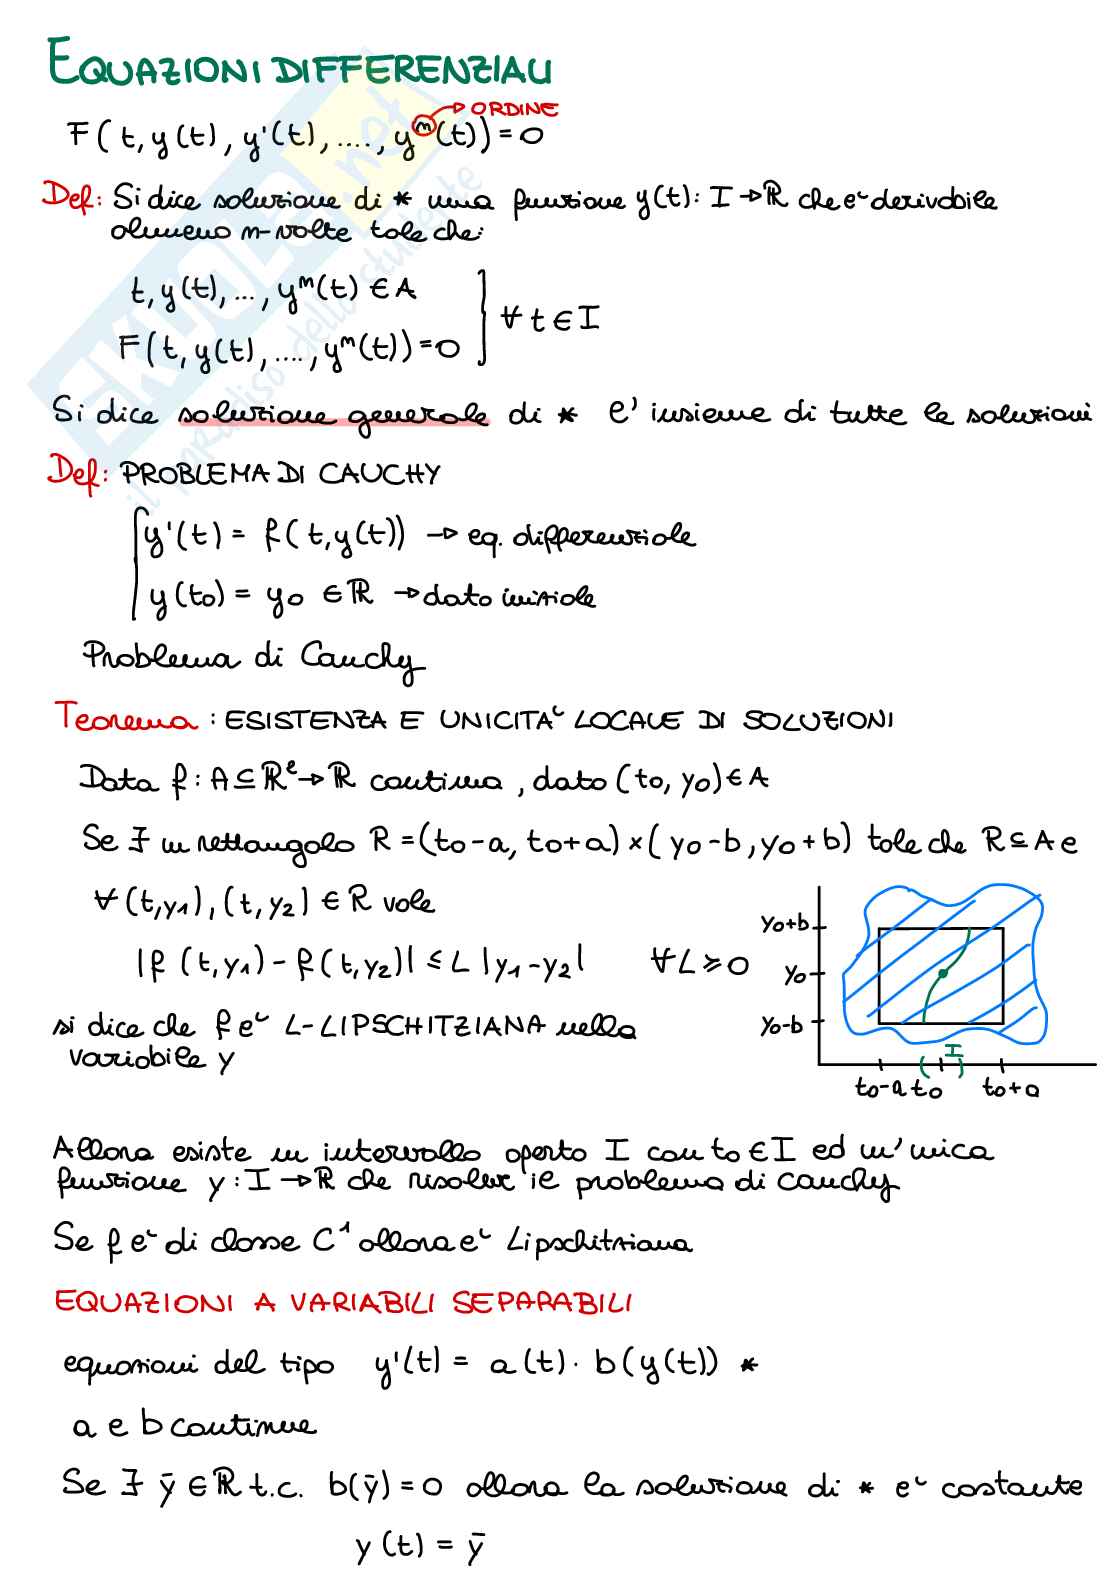 EQUAZIONI DIFFERENZIALI
→ ORDINE
F(t, y(t), y'(t), ...., yⁿ(t)) = 0
Def: Si dice soluzione di * una funzione y(t): I → ℝ che e` derivabile
almeno n-volte tale che:
t, y(t), ..., yⁿ(t) ∈ A
∀ t ∈ I
F(t, y(t), ...., yⁿ(t)) = 0
Si dice soluzione generale di * l'insieme di tutte le soluzioni
Def: PROBLEMA DI CAUCHY
y'(t) = f(t, y(t)) → eq. differenziale
y(t0) = y0 ∈ ℝ → dato iniziale
Problema di Cauchy
Teorema: ESISTENZA E UNICITA` LOCALE DI SOLUZIONI
Data f: A ⊆ ℝ² → ℝ continua, dato (t0, y0) ∈ A
Se ∃ un rettangolo R = (t0-a, t0+a) × (y0-b, y0+b) tale che R ⊆ A e
∀ (t, y1), (t, y2) ∈ R vale
|f(t, y1) - f(t, y2)| ≤ L |y1 - y2| ∀ L ≥ 0
si dice che f e` L-LIPSCHITZIANA nella
variabile y
y0+b
y0
y0-b
I
t0-a t0 t0+a
Allora esiste un intervallo aperto I con t0 ∈ I ed un'unica
funzione y: I → ℝ che risolve il problema di Cauchy
Se f e` di classe C¹ allora e` Lipschitziana
EQUAZIONI A VARIABILI SEPARABILI
equazioni del tipo y'(t) = a(t) · b(y(t)) *
a e b continue
Se ∃ ȳ ∈ ℝ t.c. b(ȳ) = 0 allora la soluzione di * e` costante
y(t) = ȳ
SKUOLA.net
il paradiso dello studente